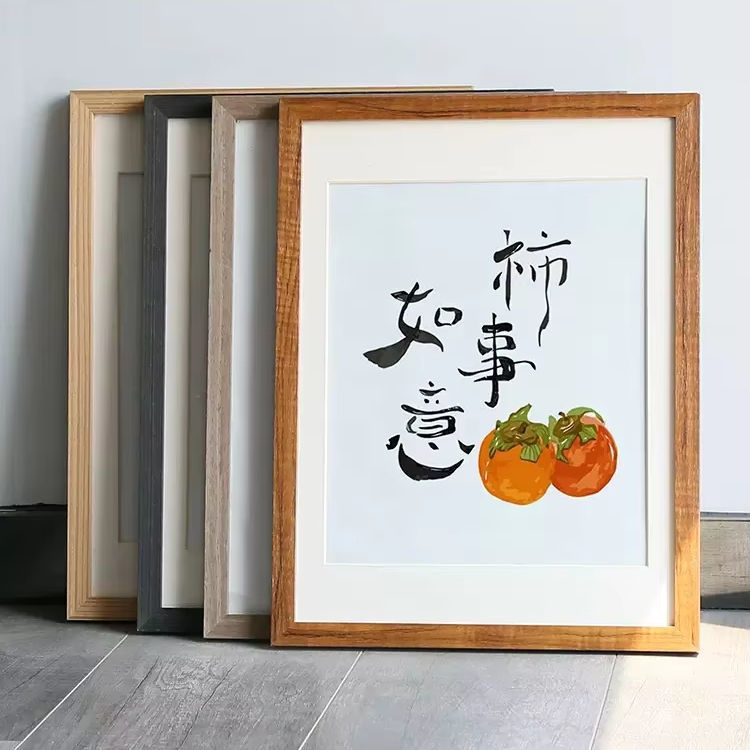 柿事
如意